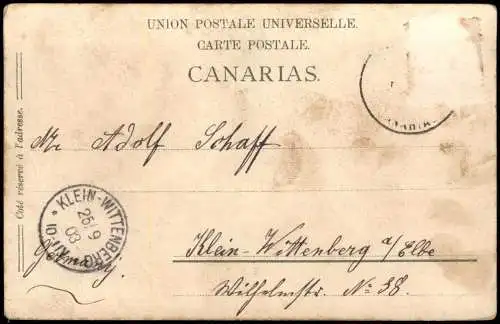 UNION POSTALE UNIVERSELLE.
CARTE POSTALE.
CANARIAS.
Coté réservé à l'adresse.
Mr. Adolf Schaff
Klein-Wittenberg a/Elbe
Wilhelmstr. No 38.
Germany.
* KLEIN-WITTENBERG
25.9
03